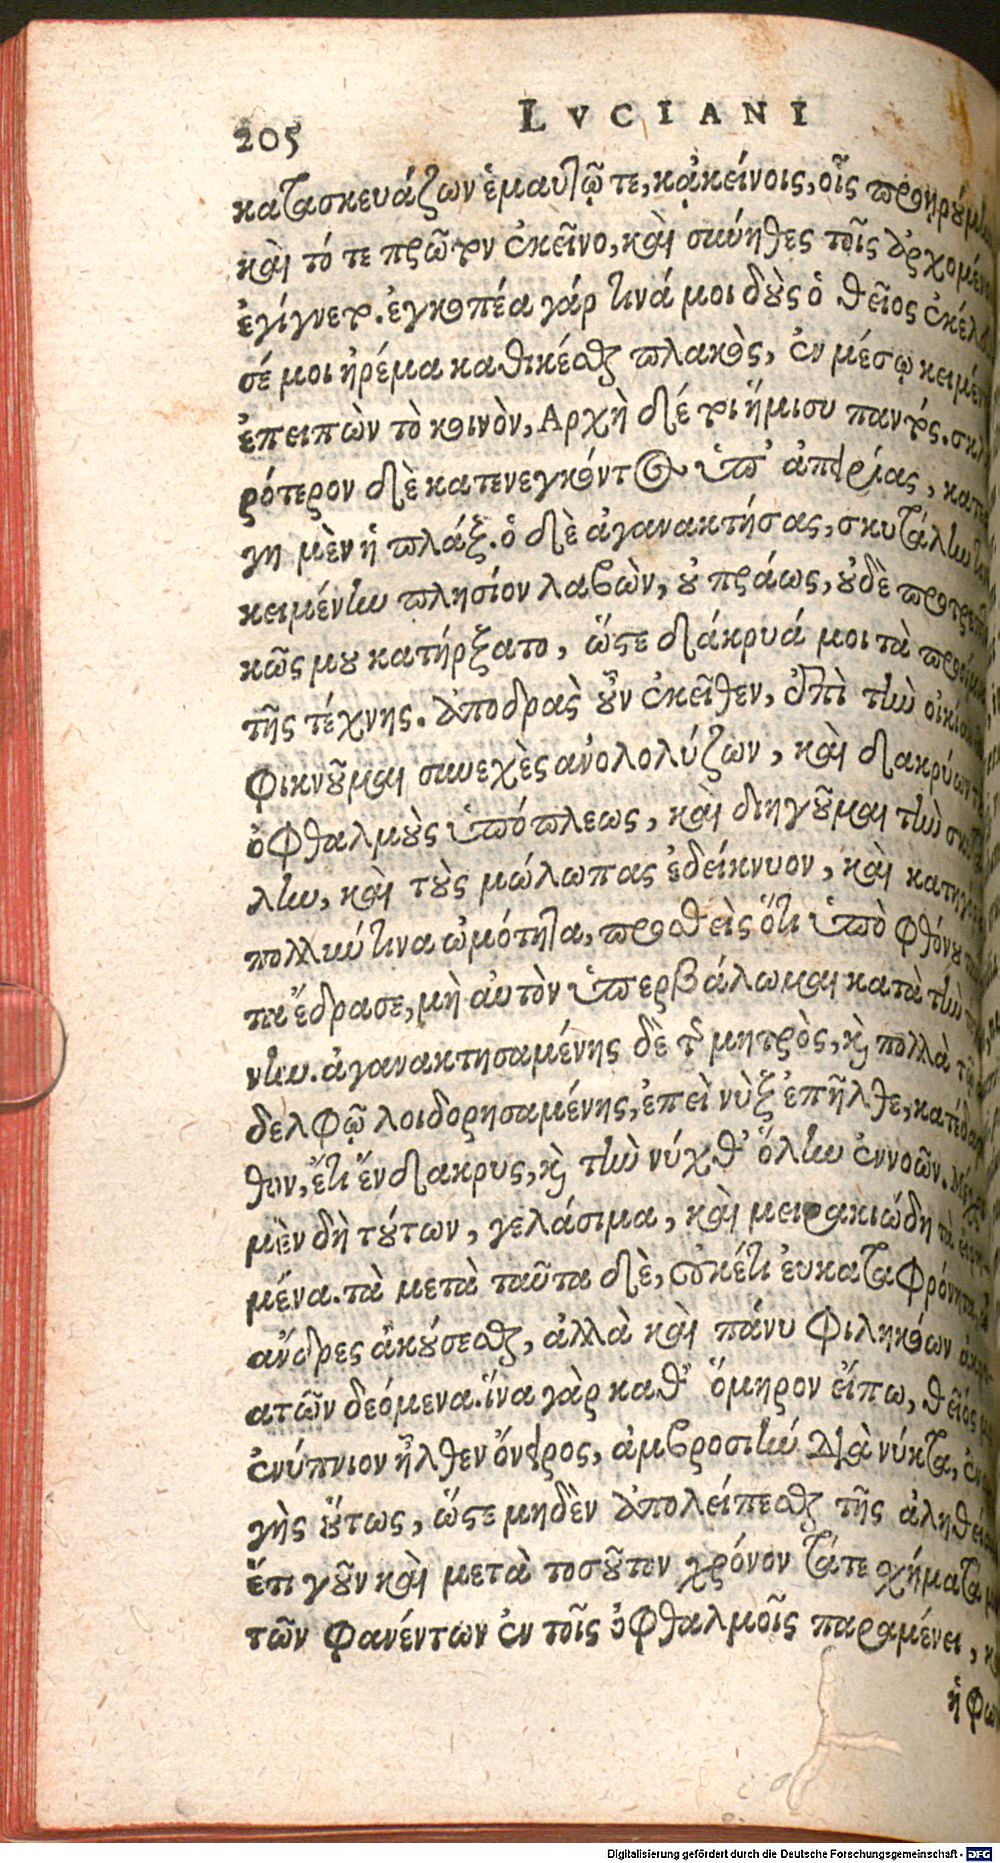 205 LVCIANI
κατασκευάζων ἐμαυτῷ τε, κᾀκείνοις, οἷς προῃρούμην
καὶ τό τε πρῶτον ἐκεῖνο, καὶ σύνηθες τοῖς ἀρχομένοις
ἐγίγνετο. ἐγκοπέα γάρ τινά μοι δοὺς ὁ θεῖος ἐκέλευ
σέ μοι ἠρέμα καθικέσθαι πλακὸς, ἐν μέσῳ κειμένης
ἐπειπὼν τὸ κοινὸν, Αρχὴ δέ τοι ἥμισυ παντός. σκλη
ρότερον δὲ κατενεγκόντος ὑπ' ἀπειρίας, κατεά
γη μὲν ἡ πλάξ. ὁ δὲ ἀγανακτήσας, σκυτάλην τινὰ
κειμένην πλησίον λαβὼν, οὐ πράως, οὐδὲ προτρεπτι
κῶς μου κατήρξατο, ὥστε δάκρυά μοι τὰ προοίμια
τῆς τέχνης. ἀποδρὰς οὖν ἐκεῖθεν, ἐπὶ τὴν οἰκίαν
φικνοῦμαι συνεχὲς ἀνολολύζων, καὶ δακρύων τοὺς
ὀφθαλμοὺς ὑπόπλεως, καὶ διηγοῦμαι τὴν σκυτά
λην, καὶ τοὺς μώλωπας ἐδείκνυον, καὶ κατηγόρουν
πολλήν τινα ὠμότητα, προσθεὶς ὅτι ὑπὸ φθόνου ταῦ
τα ἔδρασε, μὴ αὐτὸν ὑπερβάλωμαι κατὰ τὴν τέχ
νην. ἀγανακτησαμένης δὲ τῆς μητρὸς, καὶ πολλὰ τῷ ἀ
δελφῷ λοιδορησαμένης, ἐπεὶ νὺξ ἐπῆλθε, κατέδαρ
θον, ἔτι ἔνδακρυς, καὶ τὴν νύχθ' ὅλην ἐννοῶν. Μέχρι
μὲν δὴ τούτων, γελάσιμα, καὶ μειρακιώδη τὰ εἰρη
μένα. τὰ μετὰ ταῦτα δὲ, οὐκέτι ἐυκαταφρόνητα, ὦ
ἄνδρες ἀκούσεσθε, ἀλλὰ καὶ πάνυ φιληκόων ἀκρο
ατῶν δεόμενα. ἵνα γὰρ καθ' ὅμηρον εἴπω, θεῖός μοι
ἐνύπνιον ἦλθεν ὄνειρος, ἀμβροσιὴν διὰ νύκτα, ἐναρ
γὴς οὕτως, ὥστε μηδὲν ἀπολείπεσθαι τῆς ἀληθείας
ἔτι γοῦν καὶ μετὰ τοσοῦτον χρόνον τάτε σχήματά μοι
τῶν φανέντων ἐν τοῖς ὀφθαλμοῖς παραμένει, καὶ
ἡ φω
Digitalisierung gefördert durch die Deutsche Forschungsgemeinschaft - DFG